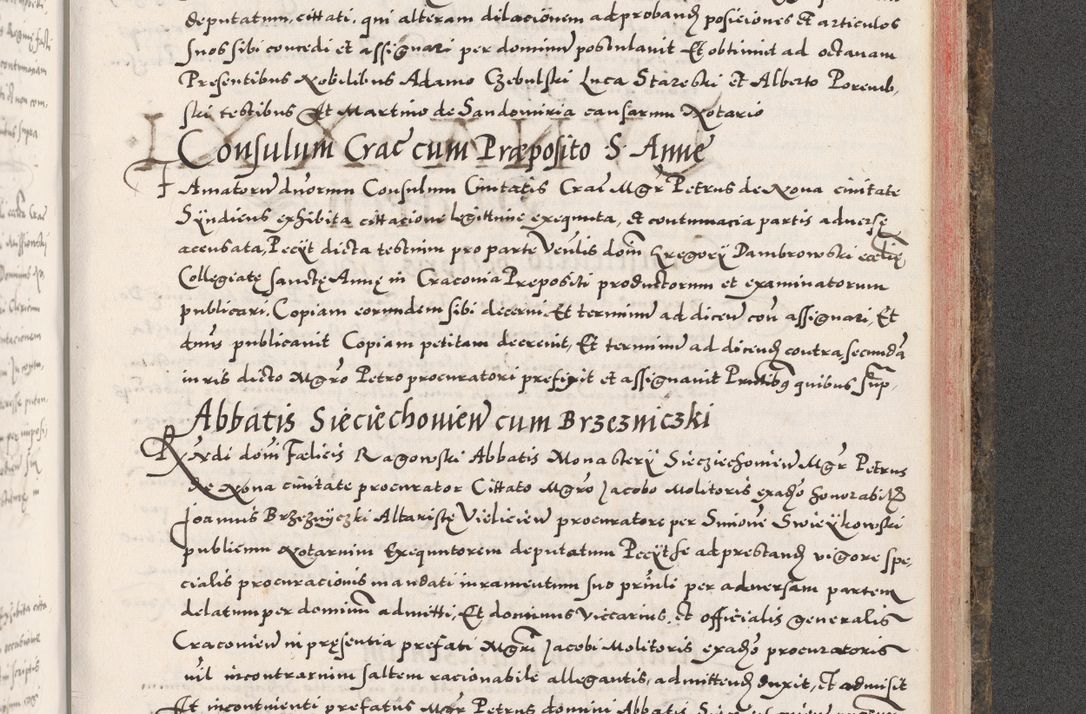 deputatum, cittati, qui alteram dilacionem ad probanđ posiciones et articulos
suos sibi concedi et assignari per dominũ postulavit Et obtinuit ad octavam
Presentibus Nobilibus Adamo Czebulski Luca Starzeski et Alberto Poremb,
ski testibus Et Martino de Sandomiria causarum Notario
Consulum Crac̃ cum Præposito S. Annę
Famatorũ dnorum Consulum Civitatis Crac̃ Mgr̃ Petrus de Nova civitate
Syndicus exhibita cittacione legittime exequuta, et contumacia partis adversę
accusata, Pecyt dicta testium pro parte Venlis dom̃ Gregorÿ Dambrowski ecclię
Collegiatę sanctę Annę in Cracovia Prępositi productorum et examinatorum
publicari. Copiam eorundem sibi decerni, Et terminũ ad dicenđ con̄ assignari, Et
dnus publicavit Copiam petitam decrevit, Et terminũ ad dicenđ contra, secunda
iuris dicto Mgr̃o Petro procuratori prefixit et assignavit Pr̃ntibus quibus sup̃,
Abbatis Sieciechovieñ cum Brzezniczki
Rñdi dom̃ Fælicis Ragowski Abbatis Monastery Siecziechovieñ Mgr̃ Petrus
de Nova civitate procurator Cittato Mgr̃o Jacobo Molitoris exadꝰo honorabilis
Joannis Brzeznyczki Altaristę Vielicieñ procuratore per Simonẽ Swieykowski
publicum Notarium Exequutorem deputatum Pecyt se ad prestanđ vigore spe,
cialis procuracionis mandati iuramentum suo pri͂nli per adversam partem
delatum per dominũ admitti, Et dominus Viccarius, et officialis generalis
Cracovieñ in pręsentia prefati Mgr̃i Jacobi Molitoris exadꝰo procuratoris
nil in contrarium saltem racionabile allegantis, admittenđ duxit, et admisit
Et incontinenti prefatus Mgr̃ Petrus domini Abbatis